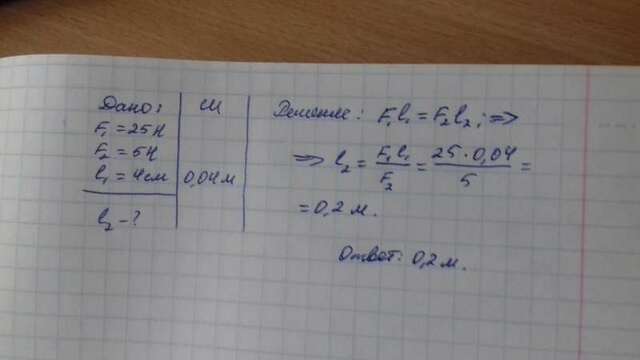 Дано:
F₁ = 25 Н
F₂ = 5 Н
l₁ = 4 см
l₂ - ?
СИ
0,04 м
Решение: F₁l₁ = F₂l₂; =>
=> l₂ = F₁l₁/F₂ = 25 · 0,04/5 =
= 0,2 м.
Ответ: 0,2 м.